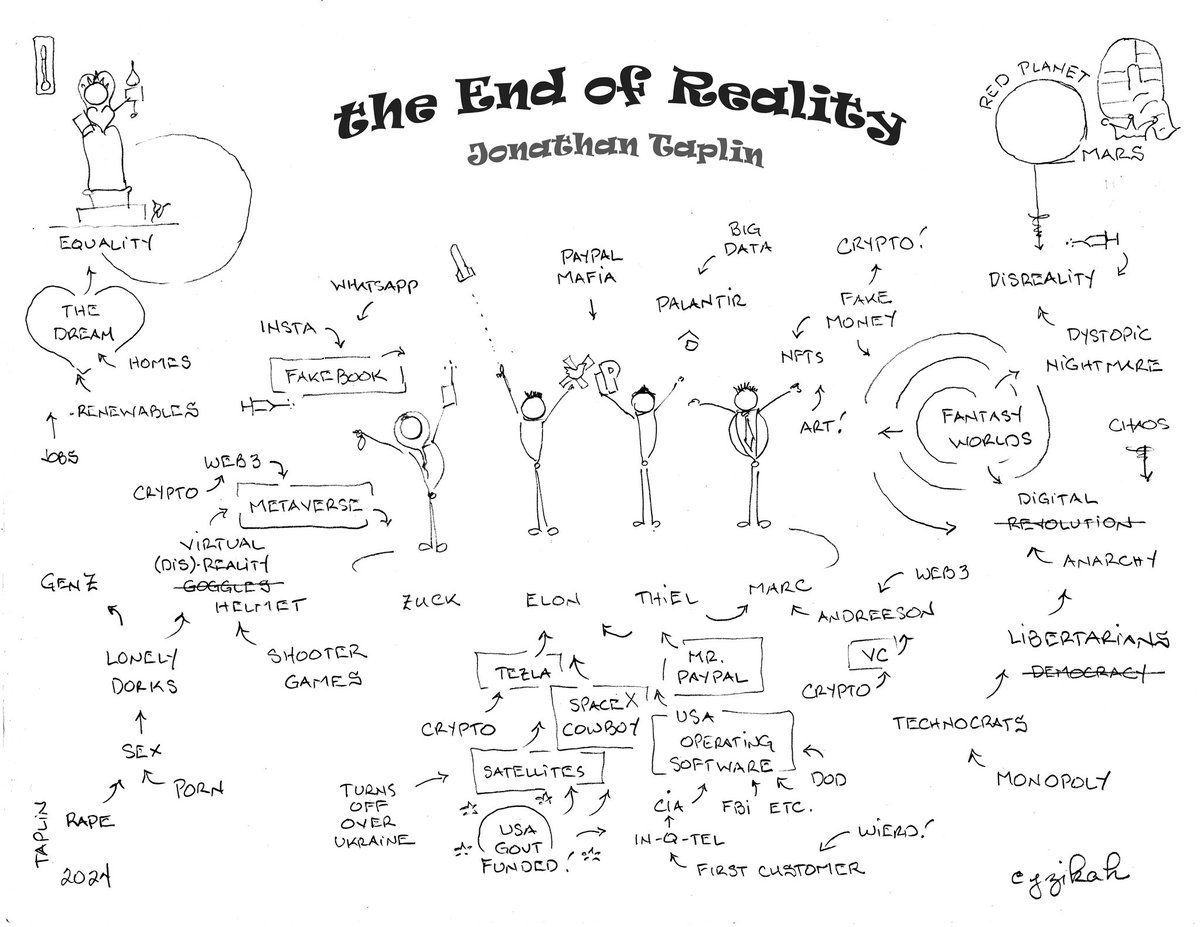 the End of Reality
Jonathan Taplin
RED PLANET
MARS
EQUALITY
THE
DREAM
HOMES
-RENEWABLES
JOBS
WHATSAPP
INSTA
FAKEBOOK
PAYPAL
MAFIA
P
BIG
DATA
PALANTIR
CRYPTO!
FAKE
MONEY
NFTS
ART!
DISREALITY
DYSTOPIC
NIGHTMARE
FANTASY
WORLDS
CHAOS
DIGITAL
REVOLUTION
ANARCHY
LIBERTARIANS
DEMOCRACY
TECHNOCRATS
MONOPOLY
WEB3
CRYPTO
METAVERSE
VIRTUAL
(DIS)·REALITY
GOGGLES
HELMET
GENZ
LONELY
DORKS
SHOOTER
GAMES
SEX
PORN
RAPE
ZUCK
ELON
THIEL
MARC
ANDREESON
WEB3
VC
CRYPTO
TEZLA
CRYPTO
SPACEX
COWBOY
SATELLITES
TURNS
OFF
OVER
UKRAINE
USA
GOUT
FUNDED!
MR.
PAYPAL
USA
OPERATING
SOFTWARE
DOD
CIA
FBI ETC.
IN-Q-TEL
WIERD!
FIRST CUSTOMER
TAPLIN
2024
cyzikah